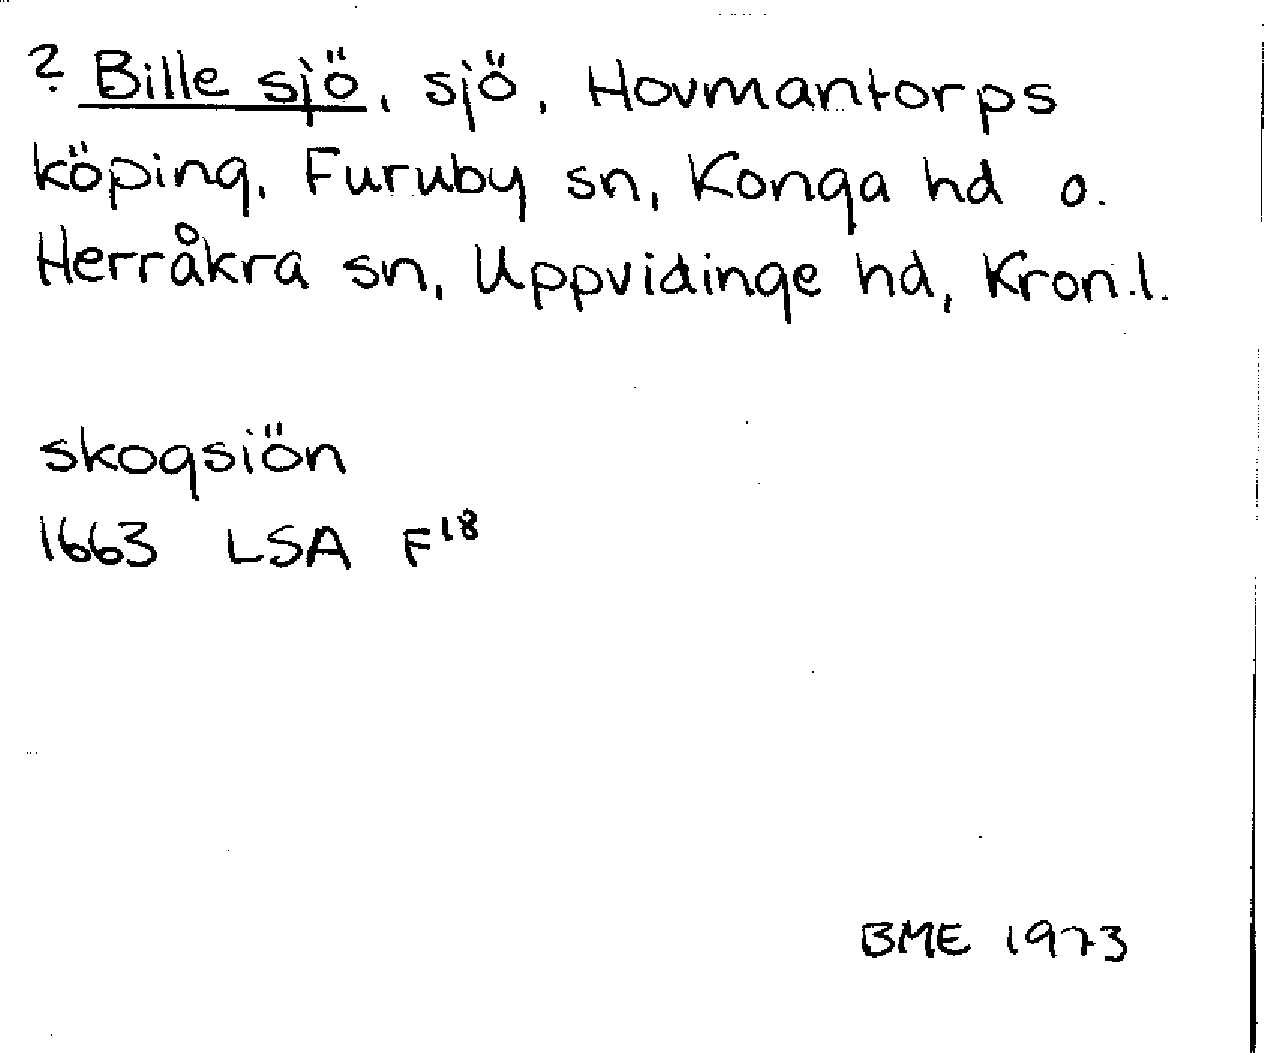 ? Bille sjö, sjö, Hovmantorps
köping, Furuby sn, Konga hd o.
Herråkra sn, Uppvidinge hd, Kron.l.
skogsiön
1663 LSA F18
BME 1973